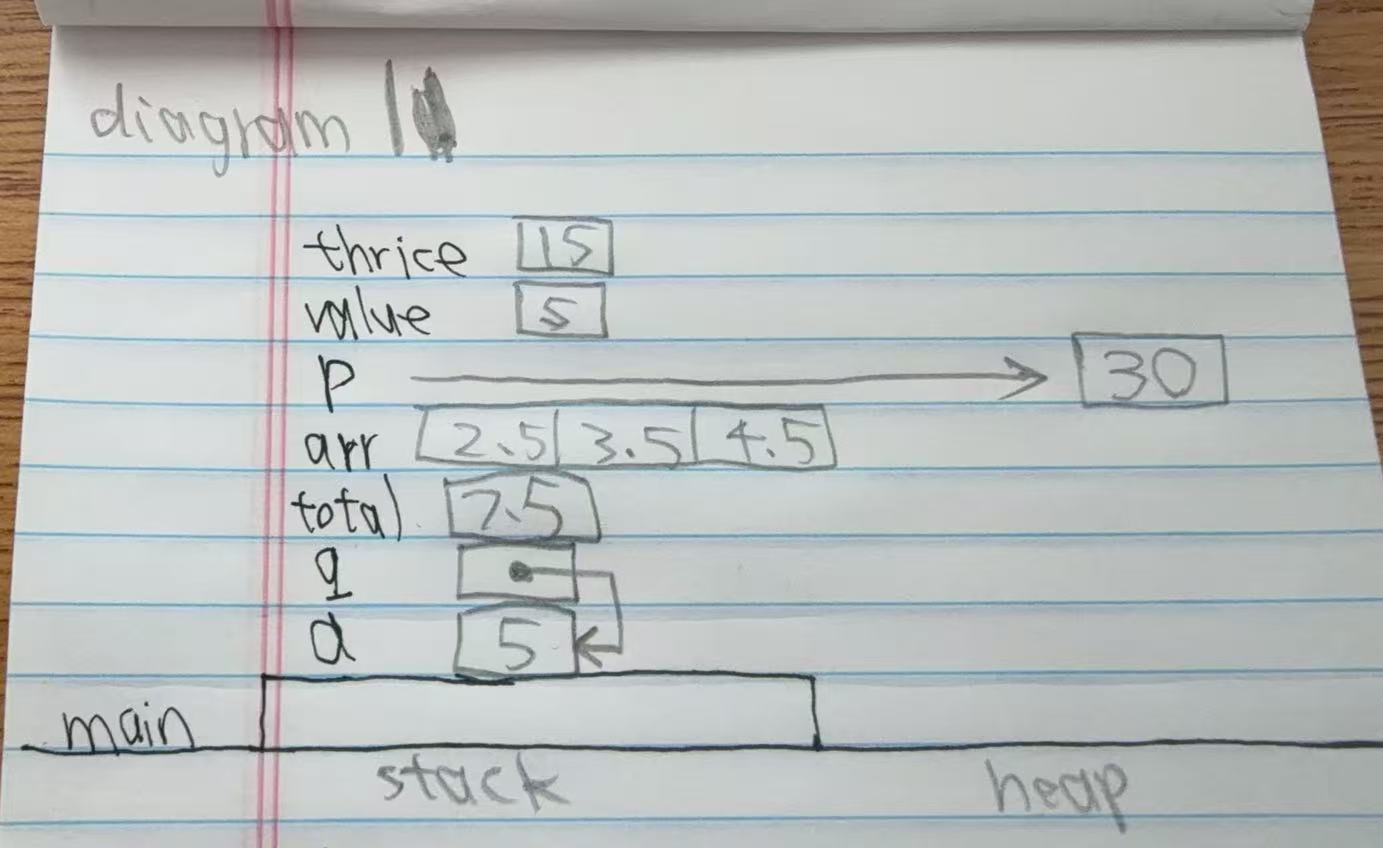 diagram 1
thrice 15
value 5
p 30
arr 2.5 3.5 4.5
total 7.5
q
a 5
main
stack heap